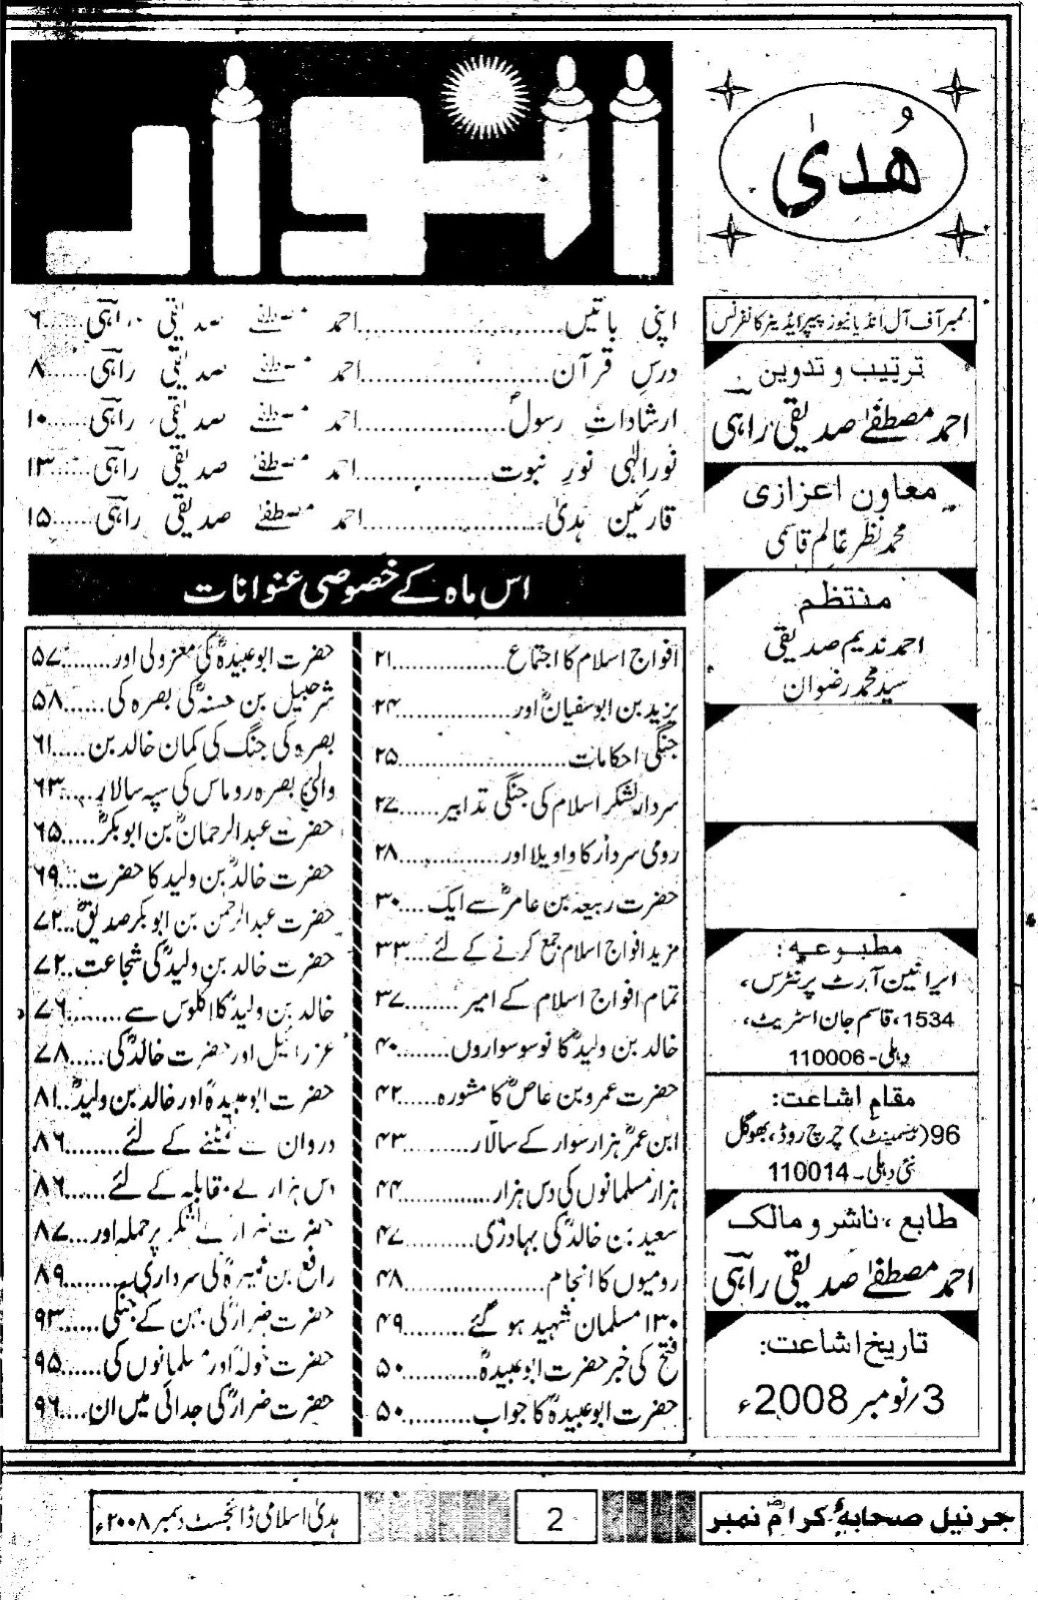 ھُدیٰ
ممبر آف آل انڈیا نیوز پیپر ایڈیٹر کانفرنس
ترتیب و تدوین
احمد مصطفےٰ صدیقی راہی
معاون اعزازی
محمد نظر عالم قاسمی
منتظم
احمد ندیم صدیقی
سید محمد رضوان
مطبوعہ:
ایرانین آرٹ پرنٹرس،
1534، قاسم جان اسٹریٹ،
دہلی-110006
مقام اشاعت:
96(بیسمینٹ) چرچ روڈ، بھوگل
نئی دہلی-110014
طابع، ناشر و مالک
احمد مصطفےٰ صدیقی راہی
تاریخ اشاعت:
3/نومبر 2008ء
انوار
اپنی باتیں......احمد مصطفےٰ صدیقی راہی......۶
درسِ قرآن......احمد مصطفےٰ صدیقی راہی......۸
ارشاداتِ رسولؐ......احمد مصطفےٰ صدیقی راہی......۱۰
نور الٰہی نورِ نبوت......احمد مصطفےٰ صدیقی راہی......۱۳
قارئین ہدیٰ......احمد مصطفےٰ صدیقی راہی......۱۵
اس ماہ کے خصوصی عنوانات
افواج اسلام کا اجتماع......۲۱
یزید بن ابوسفیانؓ اور......۲۴
جنگی احکامات......۲۵
سردار لشکر اسلام کی جنگی تدابیر......۲۷
رومی سردار کا واویلا اور......۲۸
حضرت ربیعہ بن عامرؓ سے ایک......۳۰
مزید افواج اسلام جمع کرنے کے لئے......۳۳
تمام افواج اسلام کے امیر......۳۷
خالد بن ولیدؓ کا نوسو سواروں......۴۰
حضرت عمرو بن عاصؓ کا مشورہ......۴۲
ابن عمرؓ ہزار سوار کے سالار......۴۳
ہزار مسلمانوں کی دس ہزار......۴۴
سعید بن خالدؓ کی بہادری......۴۷
رومیوں کا انجام......۴۸
۱۳۰ مسلمان شہید ہوگئے......۴۹
فتح کی خبر حضرت ابوعبیدہؓ......۵۰
حضرت ابوعبیدہؓ کا جواب......۵۰
حضرت ابوعبیدہؓ کی معزولی اور......۵۷
شرحبیل بن حسنہؓ کی بصرہ کی......۵۸
بصرہ کی جنگ کی کمان خالد بن......۶۱
والیٔ بصرہ روماس کی سپہ سالار......۶۳
حضرت عبدالرحمانؓ بن ابوبکرؓ......۶۵
حضرت خالدؓ بن ولید کا حضرت......۶۹
حضرت عبدالرحمن بن ابوبکر صدیقؓ......۷۲
حضرت خالد بن ولیدؓ کی شجاعت......۷۲
خالد بن ولیدؓ کا کلوس سے......۷۶
عزرائیل اور حضرت خالدؓ کی......۷۸
حضرت ابوعبیدہؓ اور خالد بن ولیدؓ......۸۱
دروان سے نمٹنے کے لئے......۸۶
دس ہزار سے مقابلہ کے لئے......۸۶
حضرت ضرارؓ کے لشکر پر حملہ اور......۸۷
رافع بن عمیرہؓ کی سرداری......۸۹
حضرت ضرارؓ کی بہن کے جنگی......۹۳
حضرت خولہؓ اور مسلمانوں کی......۹۵
حضرت ضرارؓ کی جدائی میں ان......۹۶
جرنیل صحابہؓ کرام نمبر
2
ہدیٰ اسلامی ڈائجسٹ دسمبر ۲۰۰۸ء